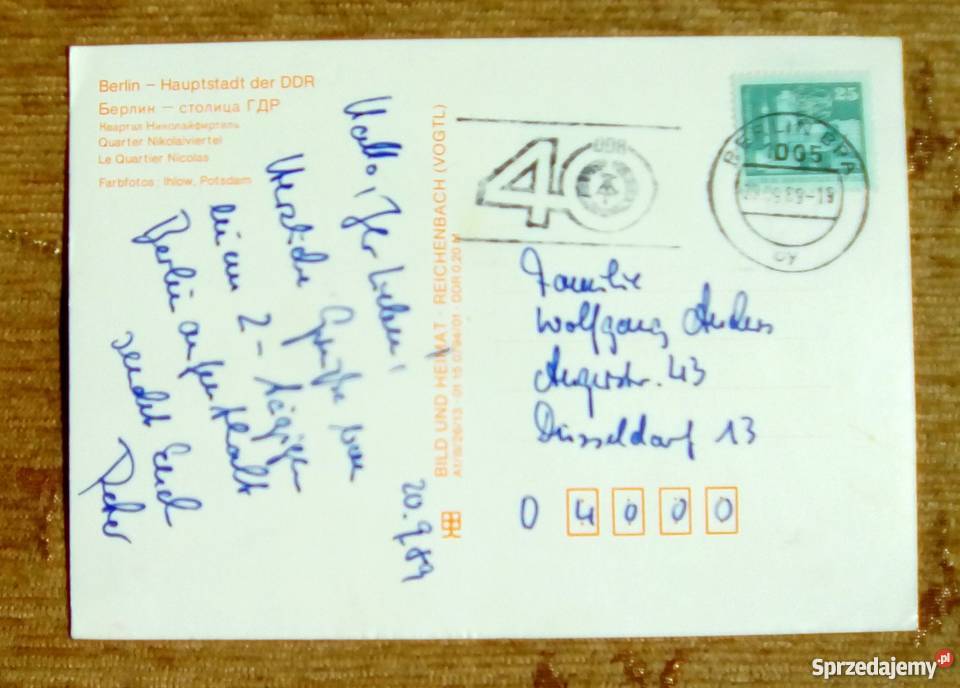 Berlin – Hauptstadt der DDR
Берлин — столица ГДР
Квартал Николайфиртель
Quarter Nikolaiviertel
Le Quartier Nicolas
Farbfotos: Ihlow, Potsdam
20.9.89
Hallo, Ihr Lieben,
Herzliche Grüße von
2-tägigen
Berlinaufenthalt
sendet Euch
Peter
BILD UND HEIMAT · REICHENBACH (VOGTL)
A1/B/26/13 · 01 15 0794/01 · DDR 0,20 M
40 DDR
25
BERLIN BPA
DDR
.09.89-19
Familie
Wolfgang Anders
Angerstr. 43
Düsseldorf 13
0 4 0 0 0
Sprzedajemy.pl